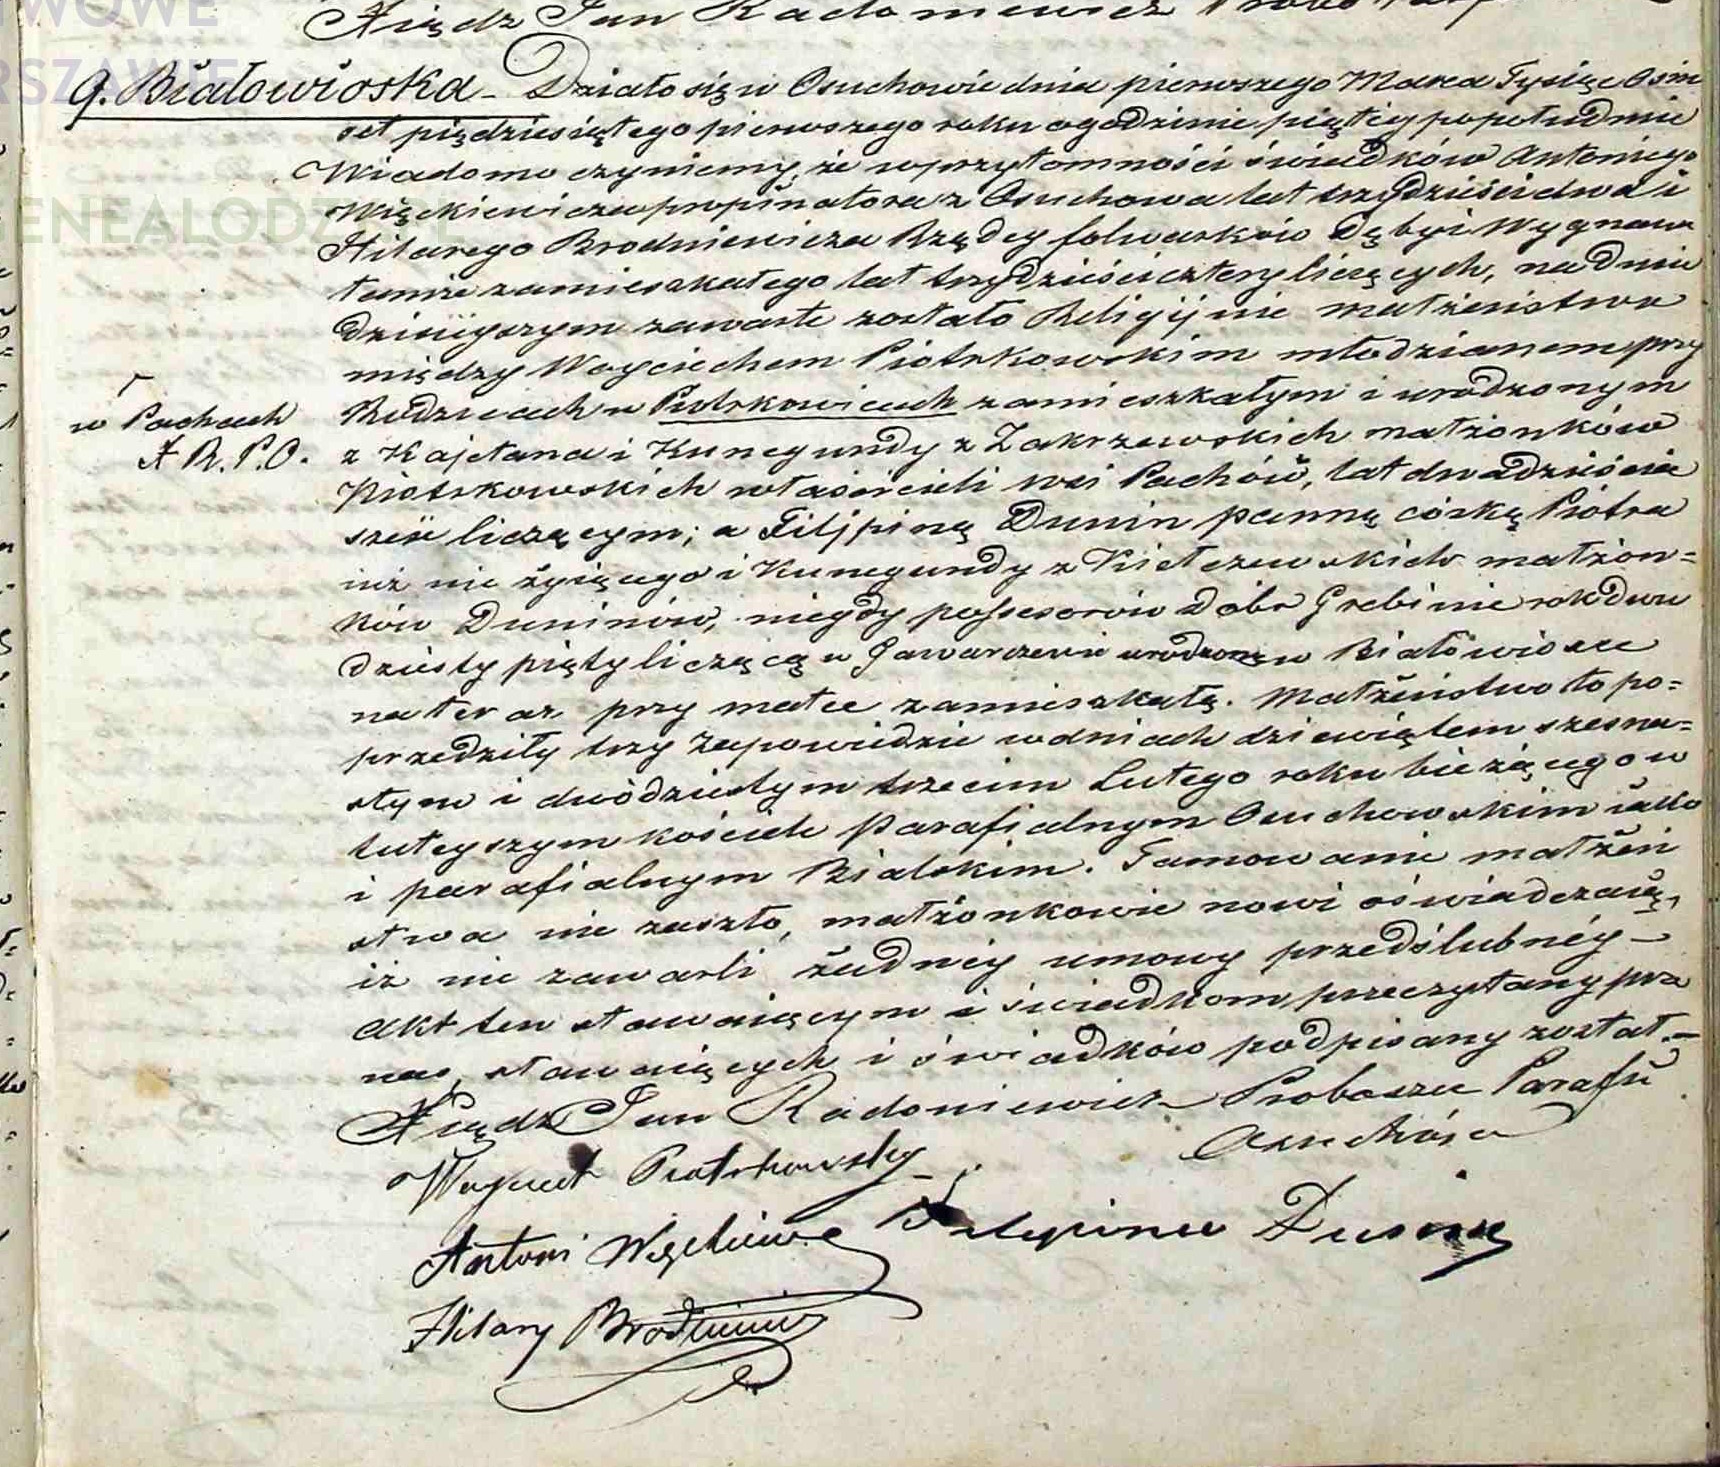 Xiądz Jan Radoniewicz Prob
9. Białowioska - Działo się w Osuchowie dnia pierwszego Marca Tysiąc Osim
set pięćdziesiątego pierwszego roku o godzinie piątey po południu
Wiadomo czyniemy, że w przytomności świadków Antoniego
Więckiewicza propinatora z Osuchowa lat trzydzieści dwa i
Hilarego Brodniewicza Rządcy folwarków Dęby i Wygnan
tamże zamieszkałego lat trzydzieści cztery liczących, na dniu
dzisieyszym zawarte zostało Religijnie małżeństwo
między Woyciechem Piotrkowskim młodzianem przy
Rodzicach w Piotrkowicach zamieszkałym i urodzonym
w Pachach
A R. P. O.
z Kajetana i Kunegundy z Zakrzewskich małżonków
Piotrkowskich właścicieli wsi Pachów, lat dwadzieścia
sześć liczącym; a Filippiną Dunin panną córką Piotra
iuż nie żyiącego i Kunegundy z Kiełczewskich małżon=
ków Duninów, niegdy possesorów Dóbr Grebinie rok dwu
dziesty piąty liczącą w Gawarczewie urodzoną w Białowiosce
na teraz przy matce zamieszkałą. Małżeństwo to po=
przedziły trzy Zapowiedzie w dniach dziewiątem szesna=
stym i dwódziestym trzecim Lutego roku bieżącego w
tuteyszym kościele Parafialnym Osuchowskim iako
i parafialnym Bialskim. Tamowanie małżeń
stwa nie zaszło, małżonkowie nowi oświadczaią,
iż nie zawarli żadnéy umowy przedślubnéy -
Akt ten stawaiącym i świadkom przeczytany prze
nas, stawaiących i świadków podpisany został. -
Xiądz Jan Radoniewicz Proboszcz Parafii
Osuchowa
Woyciech Piotrkowsky
Filipina Dunin
Antoni Więckiewicz
Hilary Brodniewicz